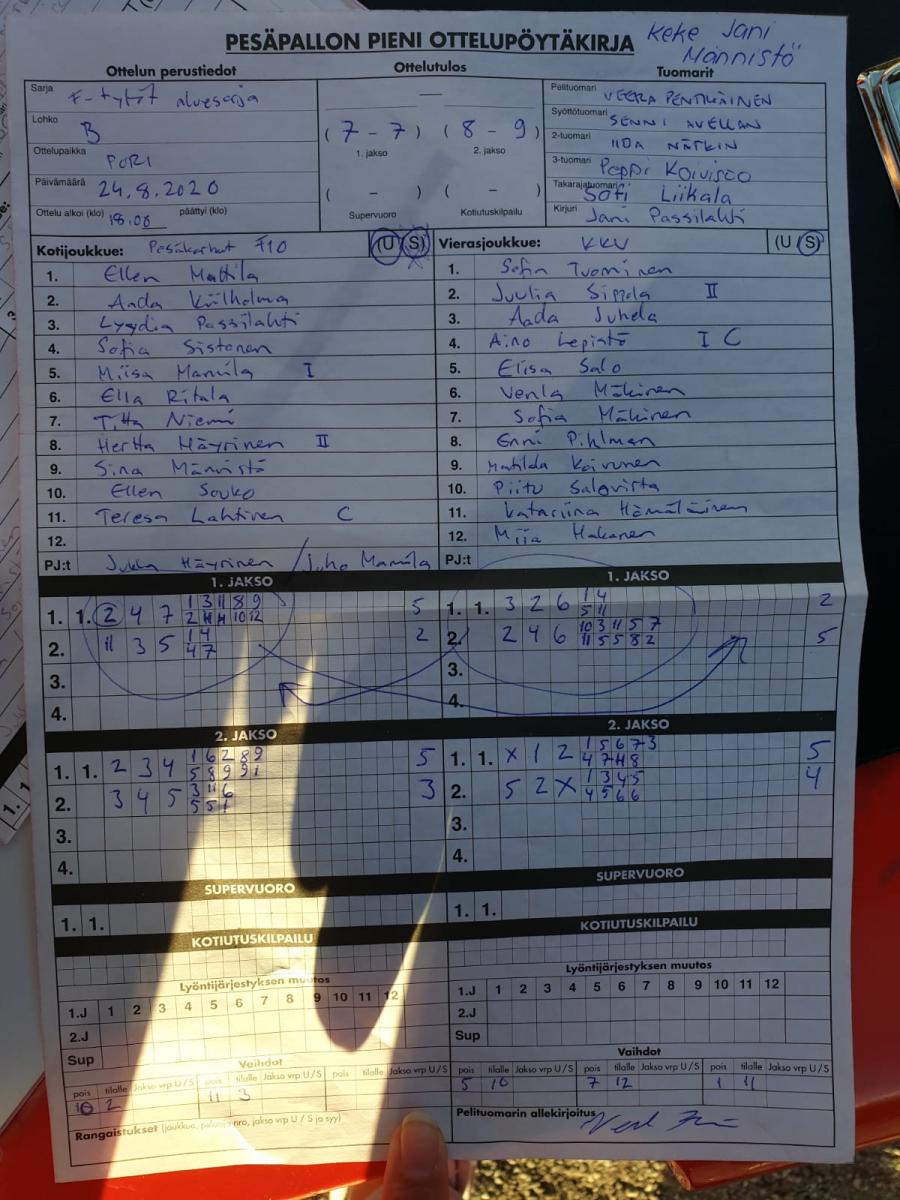 PESÄPALLON PIENI OTTELUPÖYTÄKIRJA
Keke Jani
Männistö
Ottelun perustiedot
Sarja F-tytöt aluesarja
Lohko B
Ottelupaikka PORI
Päivämäärä 24.8.2020
Ottelu alkoi (klo) 18.00 päättyi (klo)
Ottelutulos
—
( 7 - 7 ) ( 8 - 9 )
1. jakso 2. jakso
( - ) ( - )
Supervuoro Kotiutuskilpailu
Tuomarit
Pelituomari VEERA PENTIKÄINEN
Syöttötuomari SENNI AVELLAN
2-tuomari IIDA NÄTKIN
3-tuomari Peppi Koivisto
Takarajatuomari Sofi Liikala
Kirjuri Jani Passilahti
Kotijoukkue: Pesäkarhut F10 (U S)
1. Ellen Mattila
2. Aada Külholma
3. Lyydia Passilahti
4. Sofia Sistonen
5. Miisa Mannila I
6. Ella Ritala
7. Titta Niemi
8. Hertta Häyrinen II
9. Sina Männistö
10. Ellen Souko
11. Teresa Lahtinen C
12.
PJ:t Jukka Häyrinen / Juho Mannila
Vierasjoukkue: KKV (U S)
1. Sofia Tuominen
2. Juulia Sippola II
3. Aada Juhela
4. Aino Lepistö I C
5. Elisa Salo
6. Venla Mäkinen
7. Sofia Mäkinen
8. Enni Pihlman
9. Matilda Koivunen
10. Piitu Salovirta
11. Katariina Hämäläinen
12. Miia Hakanen
PJ:t
1. JAKSO
1. 1. 2 4 7 1 3 11 8 9 5
2 4 11 10 12
2. 11 3 5 1 4 2
4 7
3.
4.
1. JAKSO
1. 1. 3 2 6 1 4 2
5 11
2. 2 4 6 10 3 11 5 7 5
11 5 5 8 2
3.
4.
2. JAKSO
1. 1. 2 3 4 1 6 2 8 9 5
5 8 9 9 1
2. 3 4 5 3 11 6 3
5 5 1
3.
4.
2. JAKSO
1. 1. X 1 2 1 5 6 7 3 5
4 7 4 8
2. 5 2 X 1 3 4 5 4
4 5 6 6
3.
4.
SUPERVUORO
1. 1.
SUPERVUORO
1. 1.
KOTIUTUSKILPAILU
KOTIUTUSKILPAILU
Lyöntijärjestyksen muutos
1.J 1 2 3 4 5 6 7 8 9 10 11 12
2.J
Sup
Lyöntijärjestyksen muutos
1.J 1 2 3 4 5 6 7 8 9 10 11 12
2.J
Sup
Vaihdot
pois tilalle Jakso vrp U / S pois tilalle Jakso vrp U / S pois tilalle Jakso vrp U / S
10 2 11 3
Rangaistukset (joukkue, nro, jakso, vrp U / S ja syy)
Vaihdot
pois tilalle Jakso vrp U / S pois tilalle Jakso vrp U / S pois tilalle Jakso vrp U / S
5 10 7 12 1 11
Pelituomarin allekirjoitus